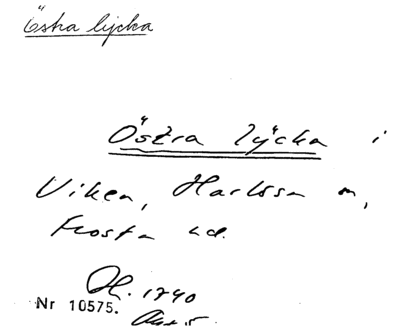 Östra lycka
Östra lycka i
Viken, Harlösa sn,
Frosta hd.
1740
Nr 10575.